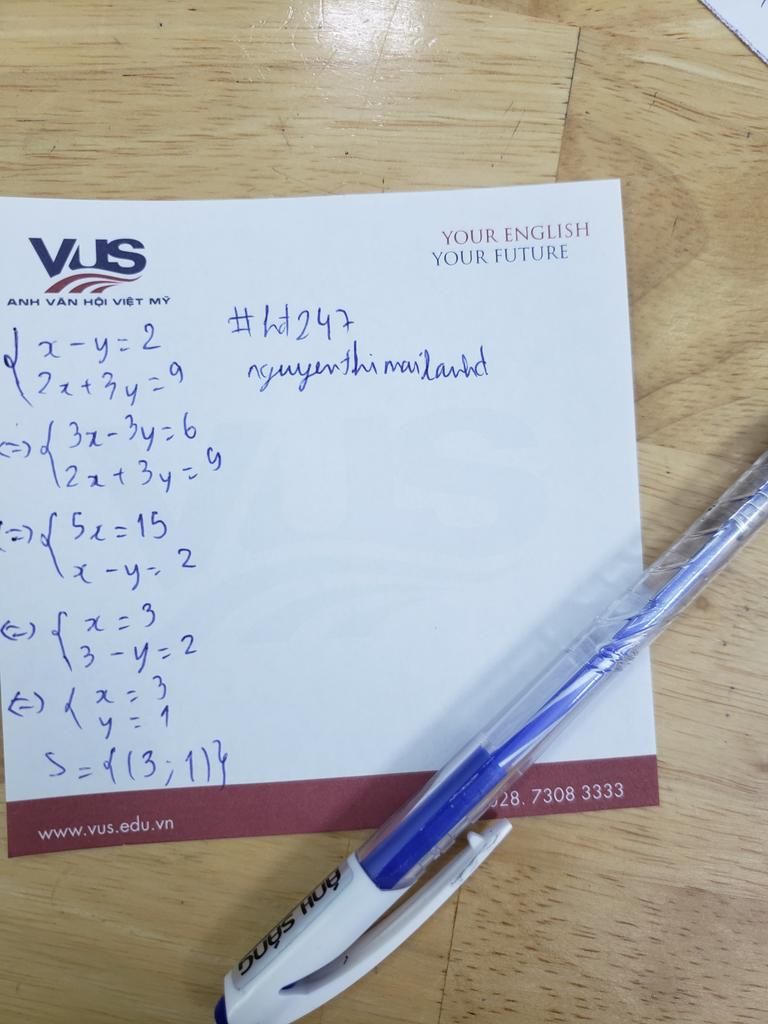 VUS
ANH VĂN HỘI VIỆT MỸ
YOUR ENGLISH
YOUR FUTURE
#hd247
nguyenthimailanhd
{ x - y = 2
2x + 3y = 9
(=) { 3x - 3y = 6
2x + 3y = 9
(=) { 5x = 15
x - y = 2
(=) { x = 3
3 - y = 2
(=) { x = 3
y = 1
S = {(3 ; 1)}
www.vus.edu.vn
028. 7308 3333